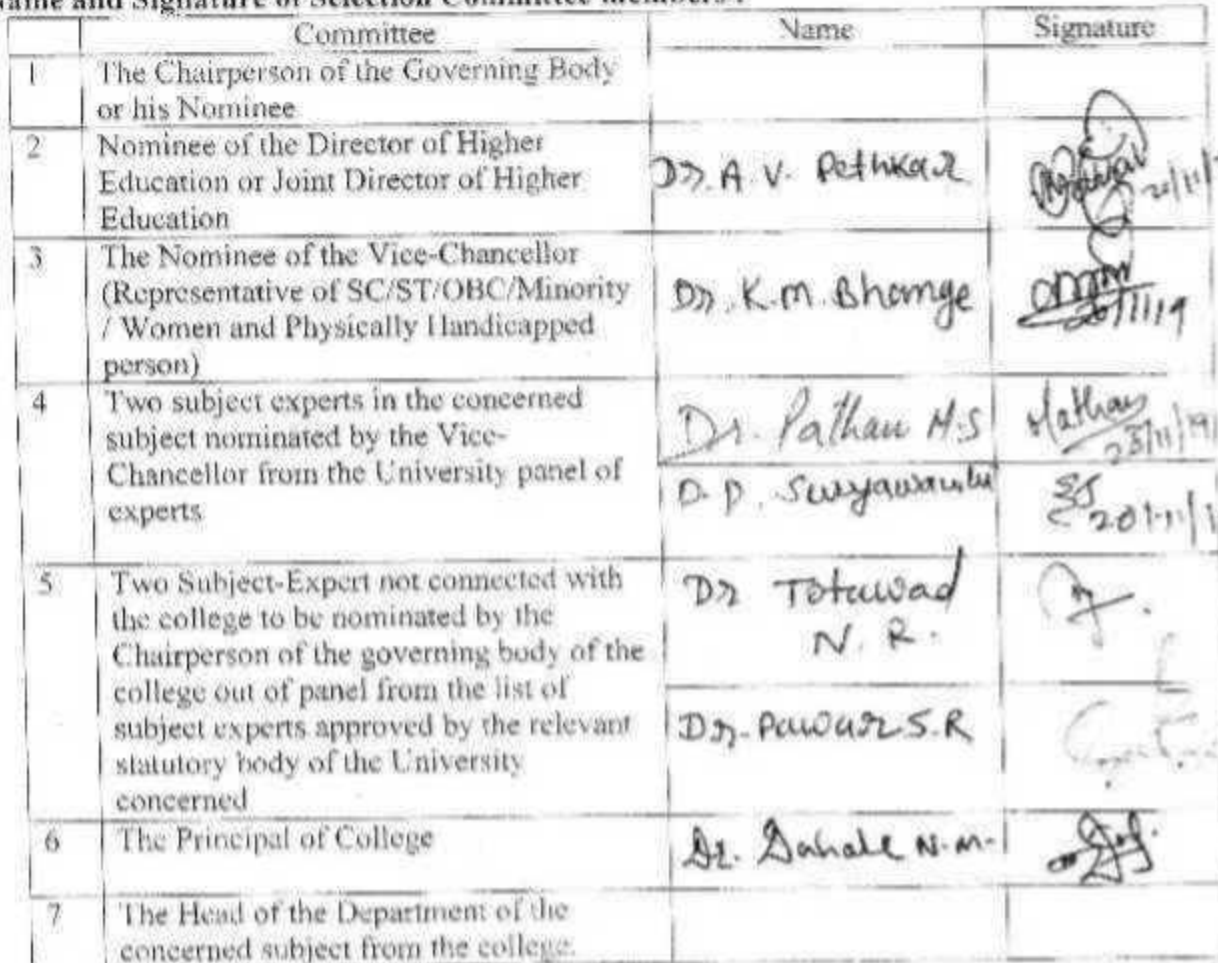 Name and Signature of Selection Committee Members :
Committee Name Signature
1 The Chairperson of the Governing Body
or his Nominee
2 Nominee of the Director of Higher
Education or Joint Director of Higher
Education
Dr. A. V. Pethkar
20/11/
3 The Nominee of the Vice-Chancellor
(Representative of SC/ST/OBC/Minority
/ Women and Physically Handicapped
person)
Dr. K.M. Bhomge
20/11/19
4 Two subject experts in the concerned
subject nominated by the Vice-
Chancellor from the University panel of
experts
Dr. Pathan M.S
/11/19
D. D. Suryawanshi
20/11/1
5 Two Subject-Expert not connected with
the college to be nominated by the
Chairperson of the governing body of the
college out of panel from the list of
subject experts approved by the relevant
statutory body of the University
concerned
Dr Totawad
N. R.
Dr. Pawar S.R
6 The Principal of College
Dr. Dahale N.M.
7 The Head of the Department of the
concerned subject from the college.